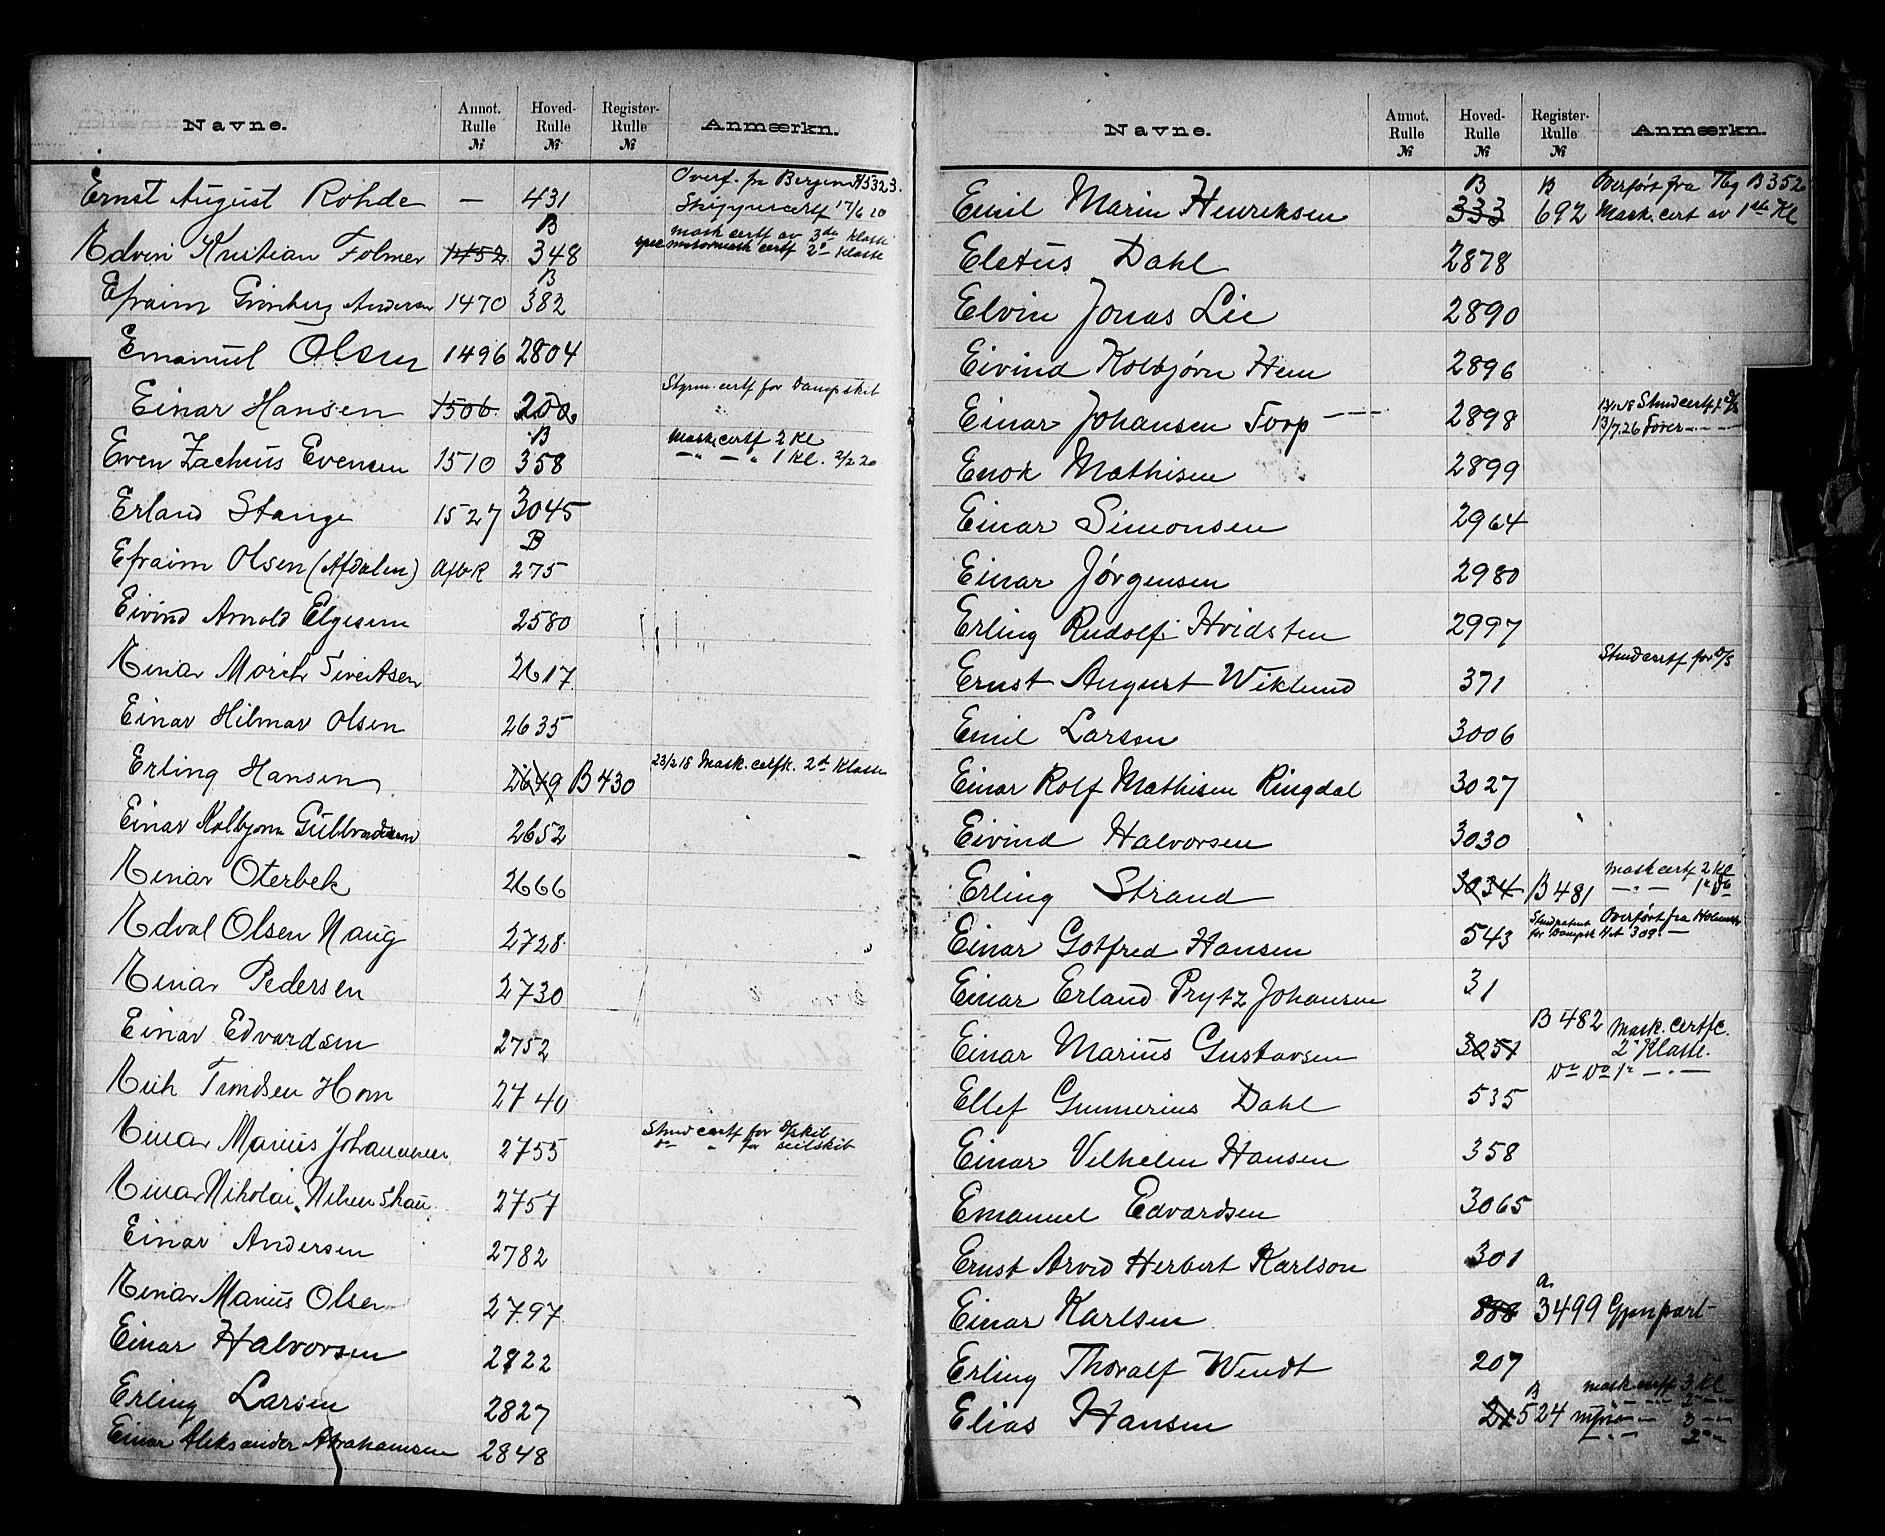 Navne. Annot. Rulle № Hoved- Rulle № Register- Rulle № Anmærkn.
Ernst August Rohde — 431 Overf. fra Bergen A 5323. Skippercertf 17/6 20
Edvin Kristian Folmer 1152 B 348 mask certf av 3de Klasse spec motormask certf 2n Klasse
Efraim Grönberg Andersen 1470 B 382
Emanuel Olsen 1496 2804
Einar Hansen 1506 200 Styrm. certf for Dampskib
Even Zacheus Evensen 1510 B 358 Mask. certf 2 Kl — " — " 1 Kl. 2/2 20
Erland Stange 1527 3045
Efraim Olsen (Afdalen) Afbk B 275
Eivind Arnold Elgesem 2580
Einar Morith Sivertsen 2617
Einar Hilmar Olsen 2635
Erling Hansen 2649 B 430 23/2 18 Mask. certfk. 2d Klasse
Einar Kolbjørn Gulbrandsen 2652
Einar Oterbek 2666
Edval Olsen Haug 2728
Einar Pedersen 2730
Einar Edvardsen 2752
Erik Trondsen Horn 2740
Einar Marius Johannesen 2755 Stmd certf for d/skib do " for seilskib
Einar Nikolai Nilsen Skau 2757
Einar Andersen 2782
Einar Marius Olsen 2797
Einar Halvorsen 2822
Erling Larsen 2827
Einar Aleksander Abrahamsen 2848
Navne. Annot. Rulle № Hoved- Rulle № Register- Rulle № Anmærkn.
Emil Marin Henriksen B 333 B 692 Overført fra Tbg B 352 Mask. cert av 1ste Kl
Eletus Dahl 2878
Elvin Jonas Lie 2890
Eivind Kolbjørn Hem 2896
Einar Johansen Torp 2898 Stmd certf f. d/s 13/7.26 Fører — " —
Enok Mathisen 2899
Einar Simonsen 2964
Einar Jørgensen 2980
Erling Rudolf Hvidsten 2997
Ernst August Wiklund 371 Stmd certf for d/s
Emil Larsen 3006
Einar Rolf Mathisen Ringdal 3027
Eivind Halvorsen 3030
Erling Strand 3034 B 481 mask certf 2 Kl — " — 1e do
Einar Gotfred Hansen 543 for Dampsk Overført fra A 309. —
Einar Erland Prytz Johansen 31
Einar Marius Gustavsen 3051 B 482 Mask. certfc. 2' Klasse. do do 1e — " —
Ellef Gunnerius Dahl 535
Einar Vilhelm Hansen 358
Emanuel Edvardsen 3065
Ernst Arvid Herbert Karlson 301
Einar Karlsen 888 a. 3499 Gjenpart
Erling Thoralf Wendt 207
Elias Hansen 215 B 524 mask certf 3 Kl